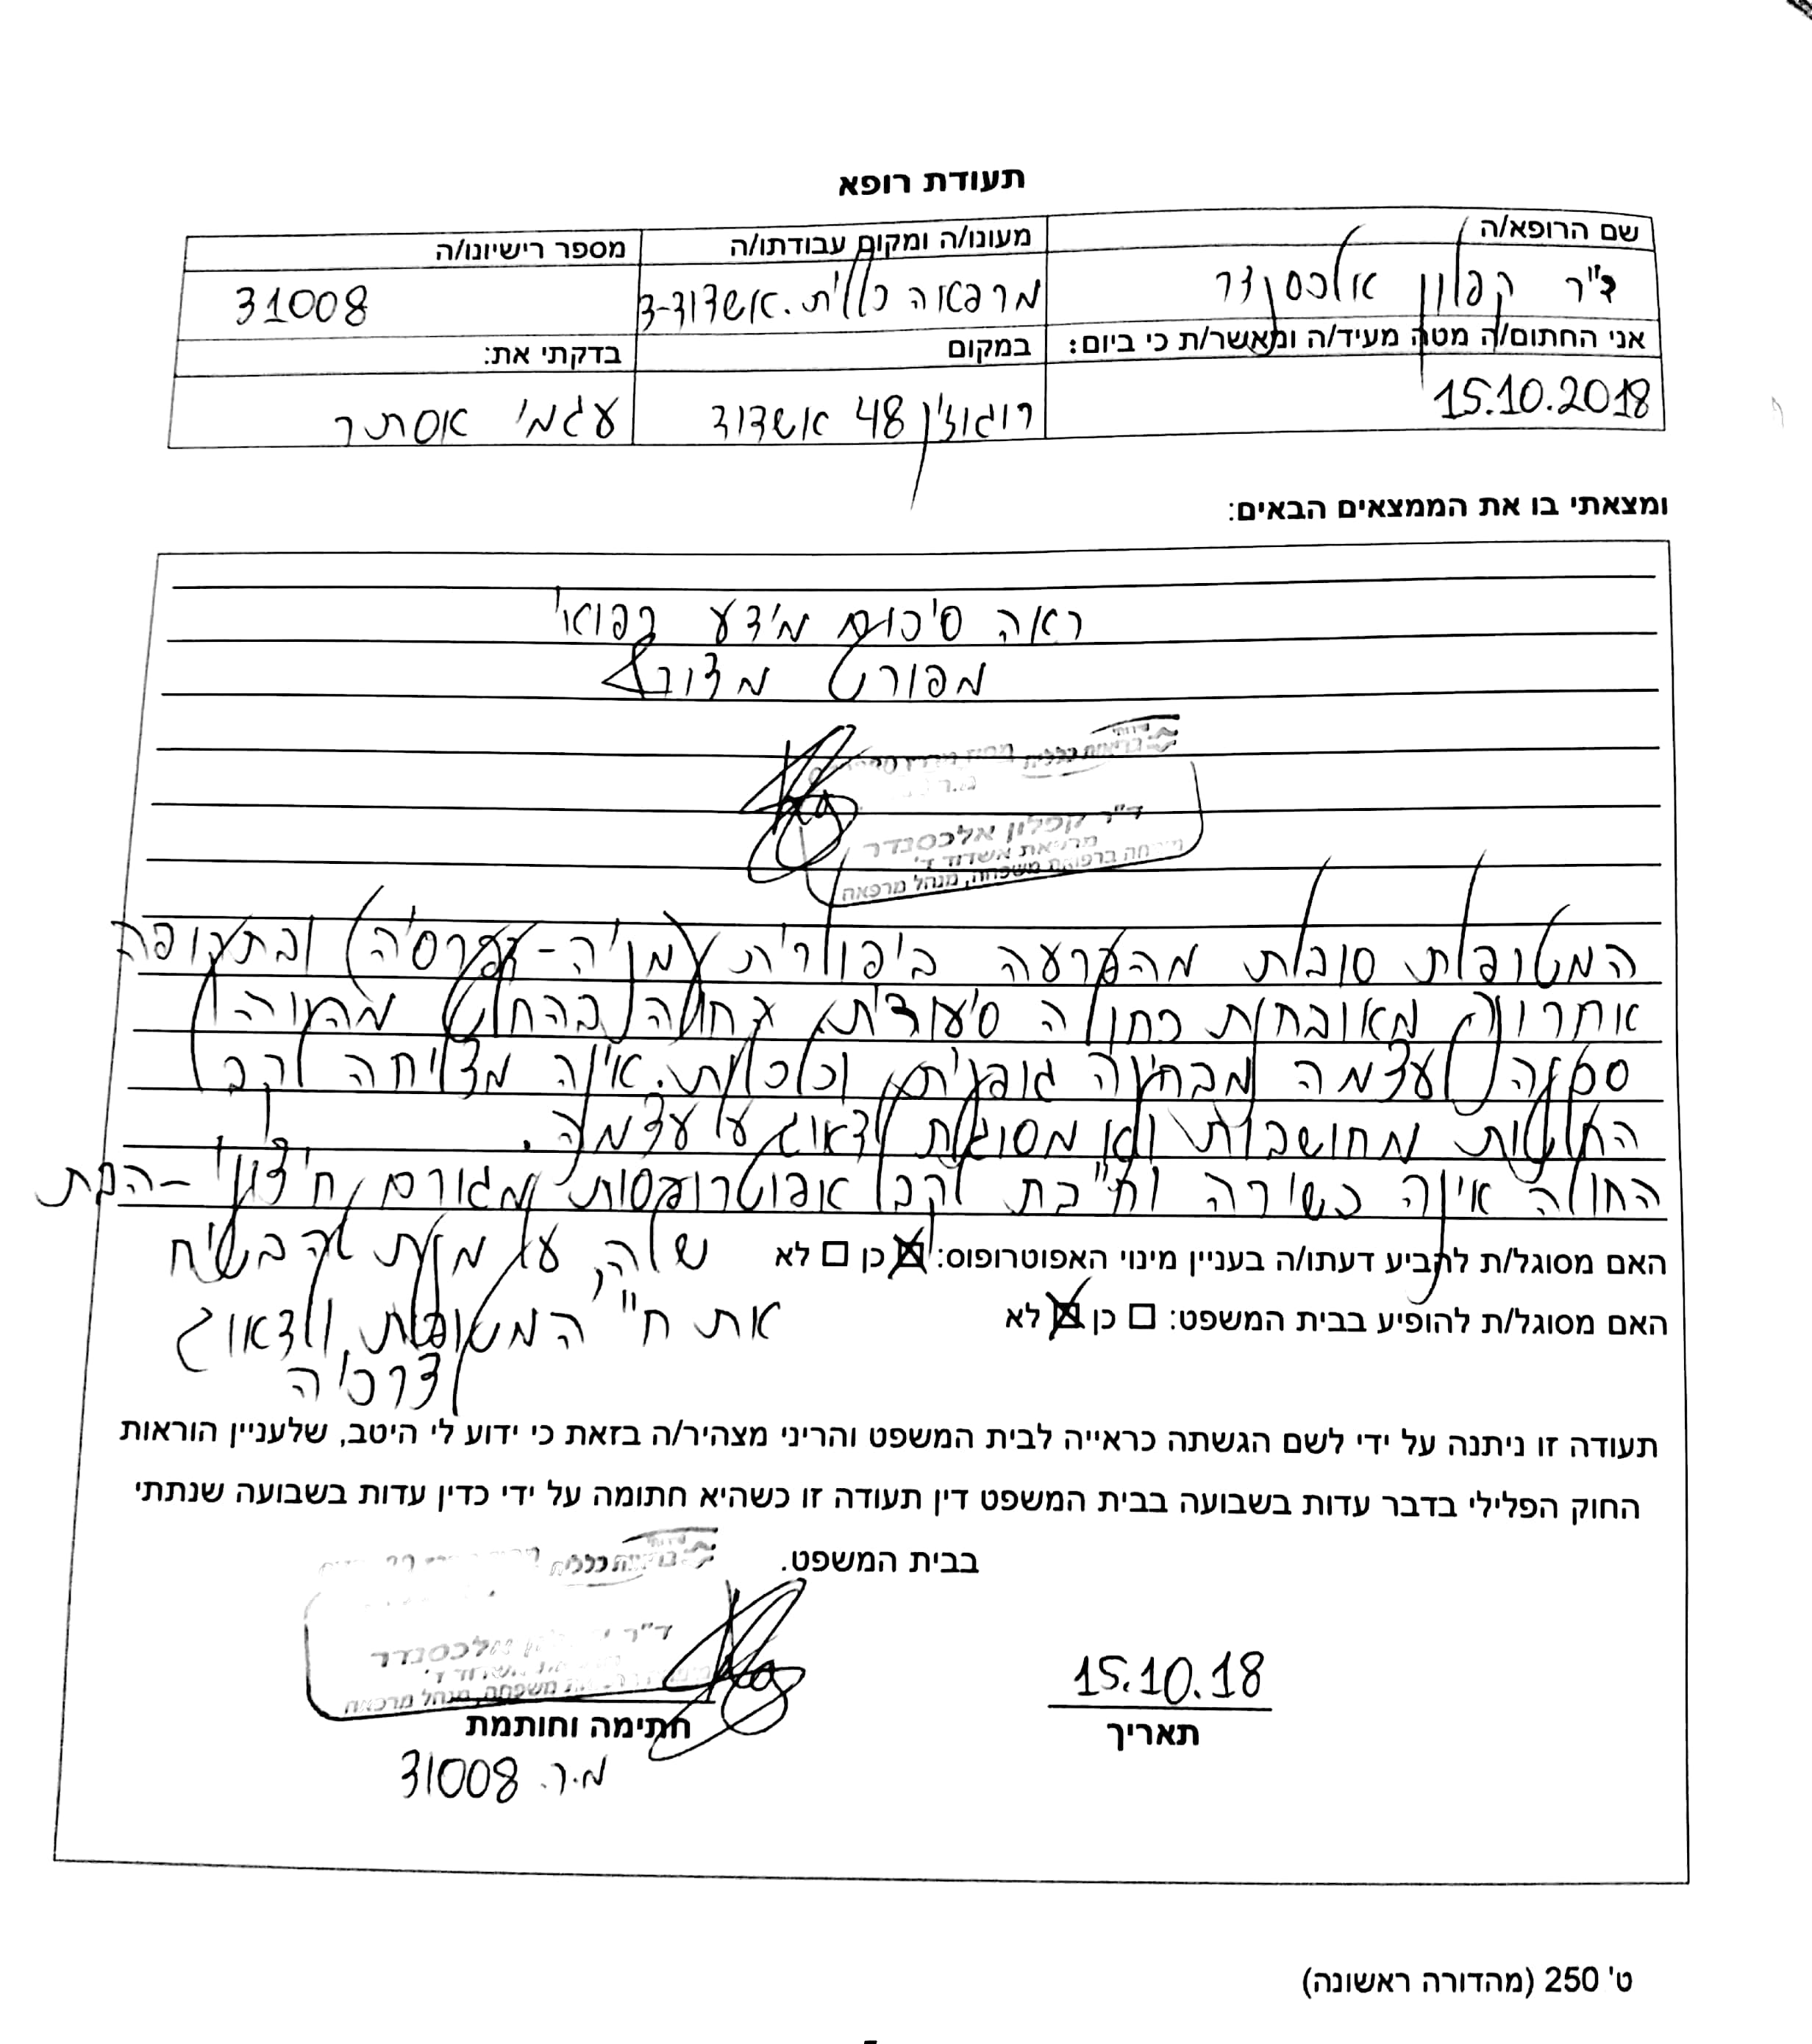 תעודת רופא
שם הרופא/ה
מעונו/ה ומקום עבודתו/ה
מספר רישיונו/ה
ד"ר קפלון אלכסנדר
מרפאה כללית. אשדוד-ד
31008
אני החתום/ה מטה מעיד/ה ומאשר/ת כי ביום:
במקום
בדקתי את:
15.10.2018
רוגוזין 48 אשדוד
עגמי אסתר
ומצאתי בו את הממצאים הבאים:
ראה סיכום מידע רפואי
מפורט מצורף
בריאות כללית
ד"ר קפלון אלכסנדר
מרפאת אשדוד ד'
מומחה ברפואת משפחה, מנהל מרפאה
המטופלת סובלת מהפרעה ביפולרית (מניה-דפרסיה) ובתקופה
אחרונה מאובחנת כחולה סיעודית. החולה בהחלט מהווה
סכנה לעצמה מבחינה גופנית וכלכלית. אינה מצליחה לקבל
החלטות מחושבות ולא מסוגלת לדאוג לעצמה.
החולה אינה כשירה וחייבת לקבל אפוטרופסות מגורם חיצוני - הבת
האם מסוגל/ת להביע דעתו/ה בעניין מינוי האפוטרופוס: כן לא
שלה, על מנת להבטיח
האם מסוגל/ת להופיע בבית המשפט: כן לא
את חיי המטופלת ולדאוג
לצרכיה
תעודה זו ניתנה על ידי לשם הגשתה כראייה לבית המשפט והריני מצהיר/ה בזאת כי ידוע לי היטב, שלעניין הוראות
החוק הפלילי בדבר עדות בשבועה בבית המשפט דין תעודה זו כשהיא חתומה על ידי כדין עדות בשבועה שנתתי
בבית המשפט.
בריאות כללית
ד"ר אלכסנדר
אשדוד ד'
משפחה, מנהל מרפאה
15.10.18
תאריך
חתימה וחותמת
מ.ר. 31008
ט' 250 (מהדורה ראשונה)